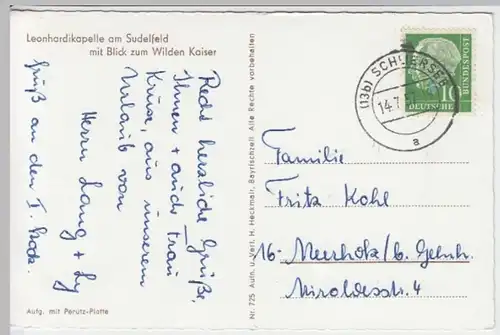 Leonhardikapelle am Sudelfeld
mit Blick zum Wilden Kaiser
Recht herzliche Grüße,
Ihnen + auch Frau
Kruse, aus unserem
Urlaub von
Herrn Lang +
Gruß an den
Aufg. mit Perutz-Platte
Nr. 725 Aufn. u. Verl. H. Heckmair, Bayrischzell Alle Rechte vorbehalten
(13b) SCHLIERSEE
14.7.
a
10
DEUTSCHE
BUNDESPOST
Familie
Fritz Kohl
16- Meerholz/b. Gelnh.
4